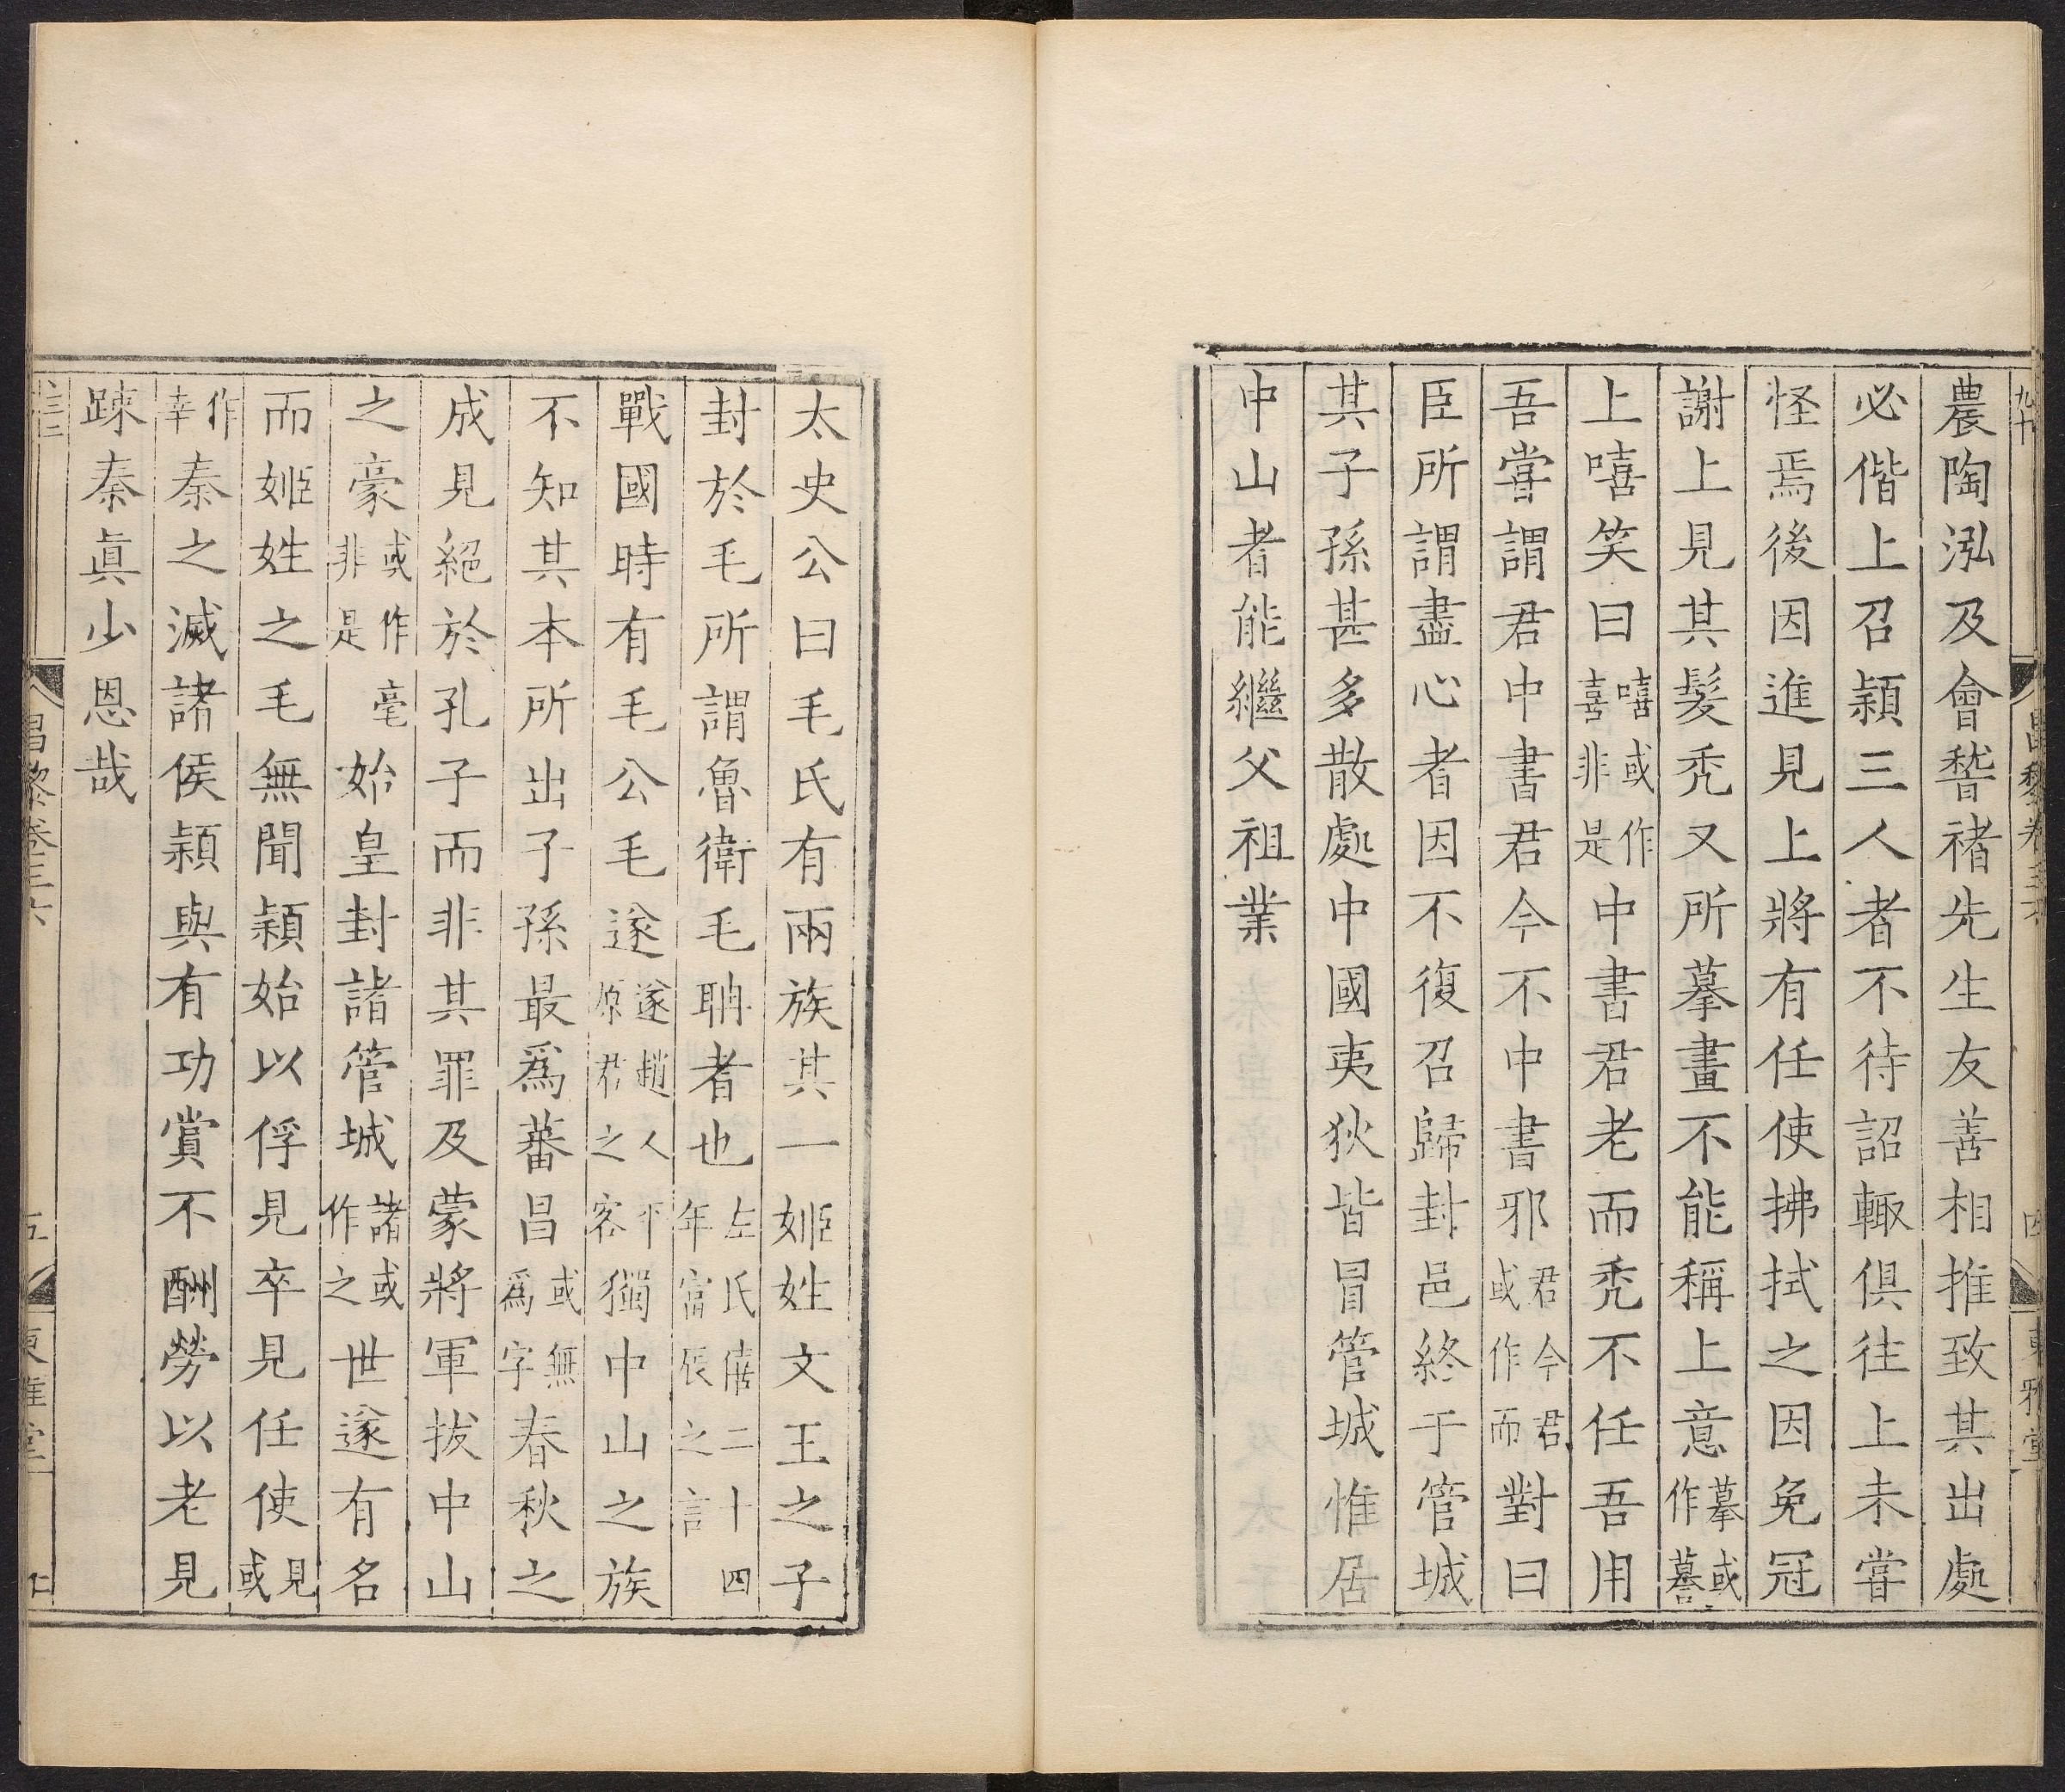 農陶泓及會稽褚先生友善相推致其出處
必偕上召穎三人者不待詔輙俱往上未嘗
怪焉後因進見上將有任使拂拭之因免冠
謝上見其髮秃又所摹畫不能稱上意摹或作謩
上嘻笑曰嘻或作喜非是中書君老而秃不任吾用
吾嘗謂君中書君今不中書邪君今君或作而對曰
臣所謂盡心者因不復召歸封邑終于管城
其子孫甚多散處中國夷狄皆冒管城惟居
中山者能繼父祖業
太史公曰毛氏有兩族其一姬姓文王之子
封於毛所謂魯衛毛聃者也左氏僖二十四年富辰之言
戰國時有毛公毛遂遂趙人平原君之客獨中山之族
不知其本所出子孫最爲蕃昌或無爲字春秋之
成見絕於孔子而非其罪及蒙將軍拔中山
之豪或作毫非是始皇封諸管城諸或作之世遂有名
而姬姓之毛無聞穎始以俘見卒見任使見或
作幸秦之滅諸侯穎與有功賞不酬勞以老見
踈秦真少恩哉
昌黎卷三六
五
東雅堂